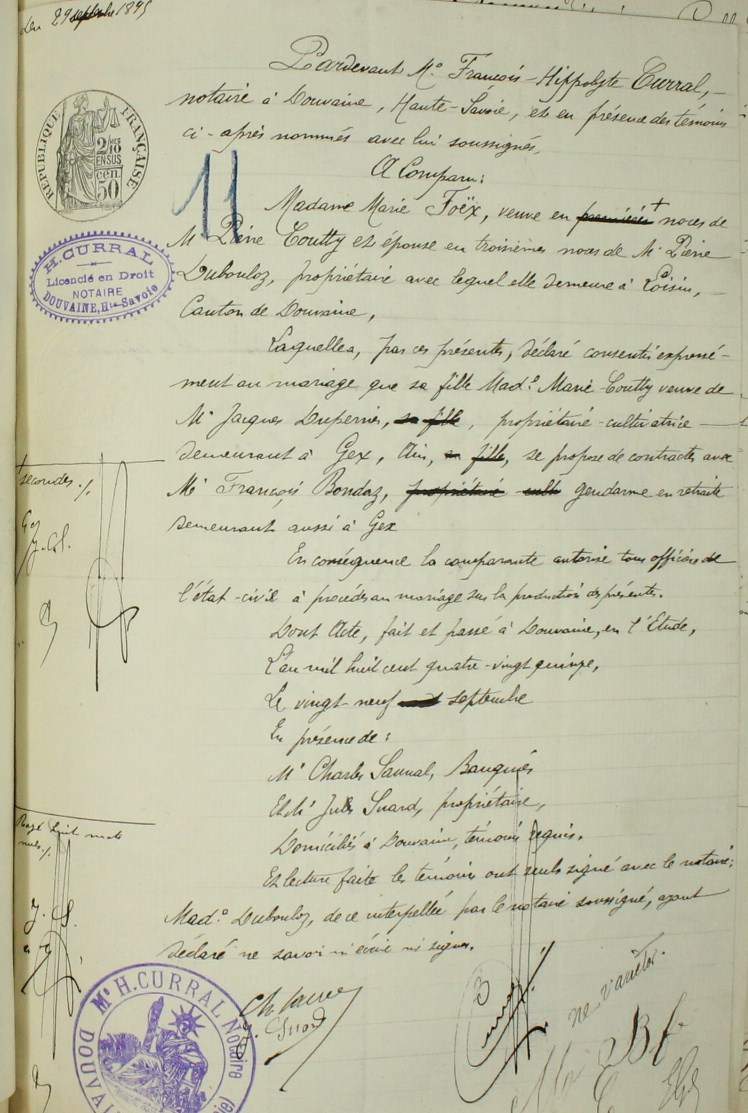 Du 29 septembre 1895
Pardevant Me François-Hippolyte Curral,
notaire à Douvaine, Haute-Savoie, et en présence des témoins
ci-après nommés avec lui soussignés.
A Comparu:
Madame Marie Foëx, veuve en premières + noces de
Mr Pierre Coutty et épouse en troisièmes noces de Mr Pierre
Dubouloz, propriétaire avec lequel elle demeure à Loisin,
Canton de Douvaine,
Laquelle a, par ces présentes, déclaré consentir expressé-
ment au mariage que sa fille Made Marie Coutty veuve de
Mr Jacques Duperrier, sa fille, propriétaire-cultivatrice
demeurant à Gex, Ain, sa fille, se propose de contracter avec
Mr François Bondaz, propriétaire cult gendarme en retraite
demeurant aussi à Gex
En conséquence la comparante autorise tous officiers de
l'état-civil à procéder au mariage sur la production des présentes.
Dont Acte, fait et passé à Douvaine, en l'Etude,
L'an mil huit cent quatre-vingt quinze,
Le vingt-neuf septembre
En présence de:
Mr Charles Saunal, Banquier
Et Mr Jules Suard, propriétaire,
Domiciliés à Douvaine, témoins requis.
Et lecture faite les témoins ont seuls signé avec le notaire;
Made Dubouloz, de ce interpellée par le notaire soussigné, ayant
déclaré ne savoir ni écrire ni signer.
+ secondes ./.
J. S.
Rayé huit mots
nuls ./.
J. S.
J. Suard
Curral
ne varietur.
11
RÉPUBLIQUE FRANÇAISE
2/10 EN SUS
50 cen
H. CURRAL
Licencié en Droit
NOTAIRE
DOUVAINE, Hte Savoie
Me H. CURRAL Notaire
DOUVAINE